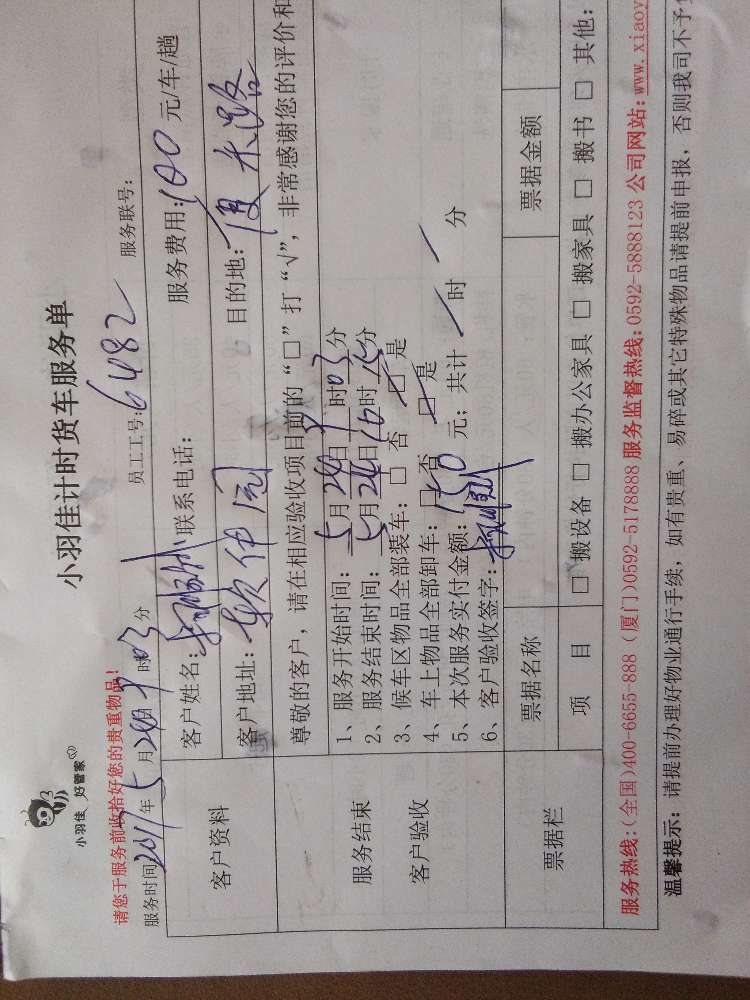 小羽佳 好管家
小羽佳计时货车服务单
请您于服务前收拾好您的贵重物品!
服务时间:2017年5月24日9时03分 员工工号:6482 服务联号:
客户资料
客户姓名: 联系电话: 服务费用:100元/车/趟
客户地址:软件园 目的地:
尊敬的客户,请在相应验收项目前的“□”打“√”,非常感谢您的评价和
服务结束
客户验收
1、服务开始时间:5月24日9时03分
2、服务结束时间:5月24日10时 分
3、候车区物品全部装车:□否 □是
4、车上物品全部卸车:□否 □是
5、本次服务实付金额:150元;共计/时/分
6、客户验收签字:
票据栏
票据名称 票据金额
项 目 □搬设备 □搬办公家具 □搬家具 □搬书 □其他:
服务热线:(全国)400-6655-888 (厦门)0592-5178888 服务监督热线:0592-5888123 公司网站:www.xiaoy
温馨提示:请提前办理好物业通行手续,如有贵重、易碎或其它特殊物品请提前申报,否则我司不予